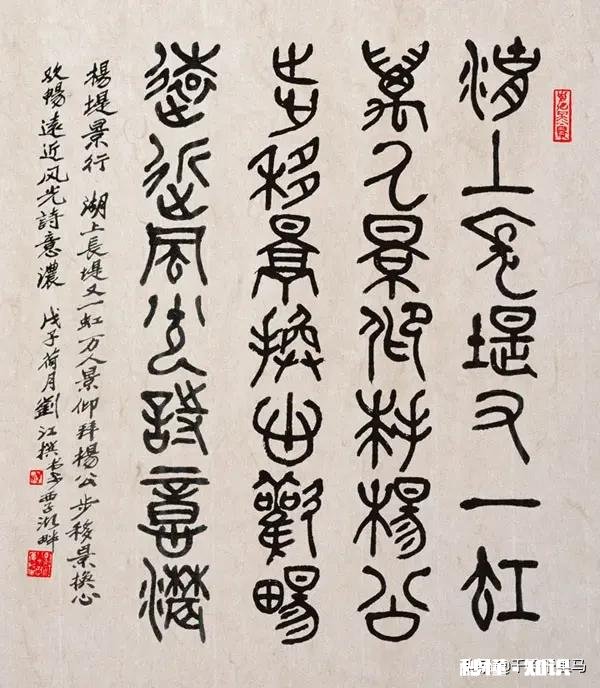 湖上長堤又一虹
萬人景仰拜楊公
步移景換心歡暢
遠近風光詩意濃
楊堤景行 湖上長堤又一虹万人景仰拜楊公步移景換心
欢暢遠近风光詩意濃 戊子荷月劉江撰书于西湖畔